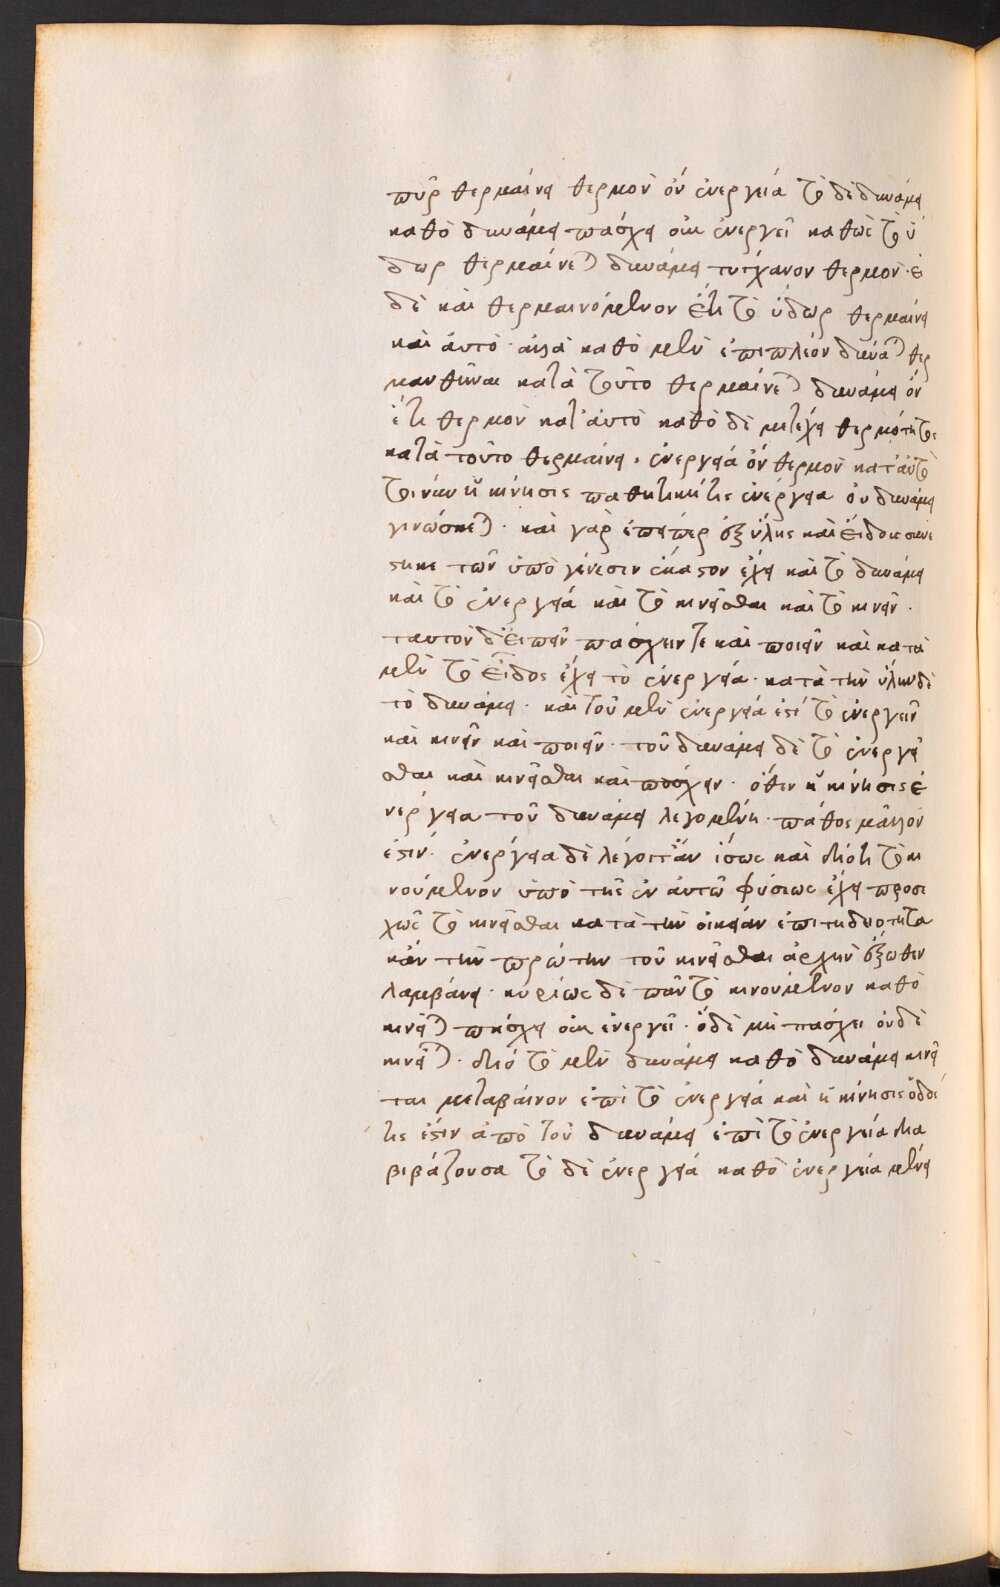 πῦρ θερμαίνει θερμὸν ὂν ἐνεργείᾳ τὸ δὲ δυνάμει
καθὸ δυνάμει πάσχει οὐκ ἐνεργεῖ καθὼς τὸ ὕ
δωρ θερμαίνεται δυνάμει τυγχάνον θερμόν· εἰ
δὲ καὶ θερμαινόμενον ἔτι τὸ ὕδωρ θερμαίνει
καὶ αὐτὸ· ἀλλὰ καθὸ μὲν ἐπιπλέον δύναται θερ
μανθῆναι κατὰ τοῦτο θερμαίνεται δυνάμει ὂν
ἔτι θερμὸν κατ' αὐτὸ καθὸ δὲ μετέχει θερμότητος
κατὰ τοῦτο θερμαίνει· ἐνεργείᾳ ὂν θερμὸν κατ' αὐτὸ
τοίνυν ἡ κίνησις παθητική τις ἐνέργεια οὖ δυνάμει
γινώσκεται· καὶ γὰρ ἐπείπερ ἐξ ὕλης καὶ εἴδους συνέ
στηκε τῶν ὑπὸ γένεσιν ἕκαστον ἔχει καὶ τὸ δυνάμει
καὶ τὸ ἐνεργείᾳ καὶ τὸ κινεῖσθαι καὶ τὸ κινεῖν·
ταυτὸν δ' εἰπεῖν πάσχειν τε καὶ ποιεῖν καὶ κατὰ
μὲν τὸ εἶδος ἔχει τὸ ἐνεργείᾳ· κατὰ τὴν ὕλην δὲ
τὸ δυνάμει· καὶ τοῦ μὲν ἐνεργείᾳ ἐστὶ τὸ ἐνεργεῖν
καὶ κινεῖν καὶ ποιεῖν· τοῦ δυνάμει δὲ τὸ ἐνεργεῖ
σθαι καὶ κινεῖσθαι καὶ πάσχειν· ὅθεν ἡ κίνησις ἐ
νέργεια τοῦ δυνάμει λεγομένη· πάθος μᾶλλον
ἐστίν· ἐνέργεια δὲ λέγοιτ' ἂν ἴσως καὶ διότι τὸ κι
νούμενον ὑπὸ τῆς ἐν αὐτῷ φύσεως ἔχει προσε
χῶς τὸ κινεῖσθαι κατὰ τὴν οἰκείαν ἐπιτηδειότητα
κἂν τὴν πρώτην τοῦ κινεῖσθαι ἀρχὴν ἔξωθεν
λαμβάνει· κυρίως δὲ πᾶν τὸ κινούμενον καθὸ
κινεῖται πάσχει οὐκ ἐνεργεῖ· ὃ δὲ μὴ πάσχει οὐδὲ
κινεῖται· διὸ τὸ μὲν δυνάμει καθὸ δυνάμει κινεῖ
ται μεταβαῖνον ἐπὶ τὸ ἐνεργείᾳ καὶ ἡ κίνησις ὁδός
τις ἐστιν ἀπὸ τοῦ δυνάμει ἐπὶ τὸ ἐνεργείᾳ δια
βιβάζουσα τὸ δὲ ἐνεργείᾳ καθὸ ἐνεργείᾳ μένει